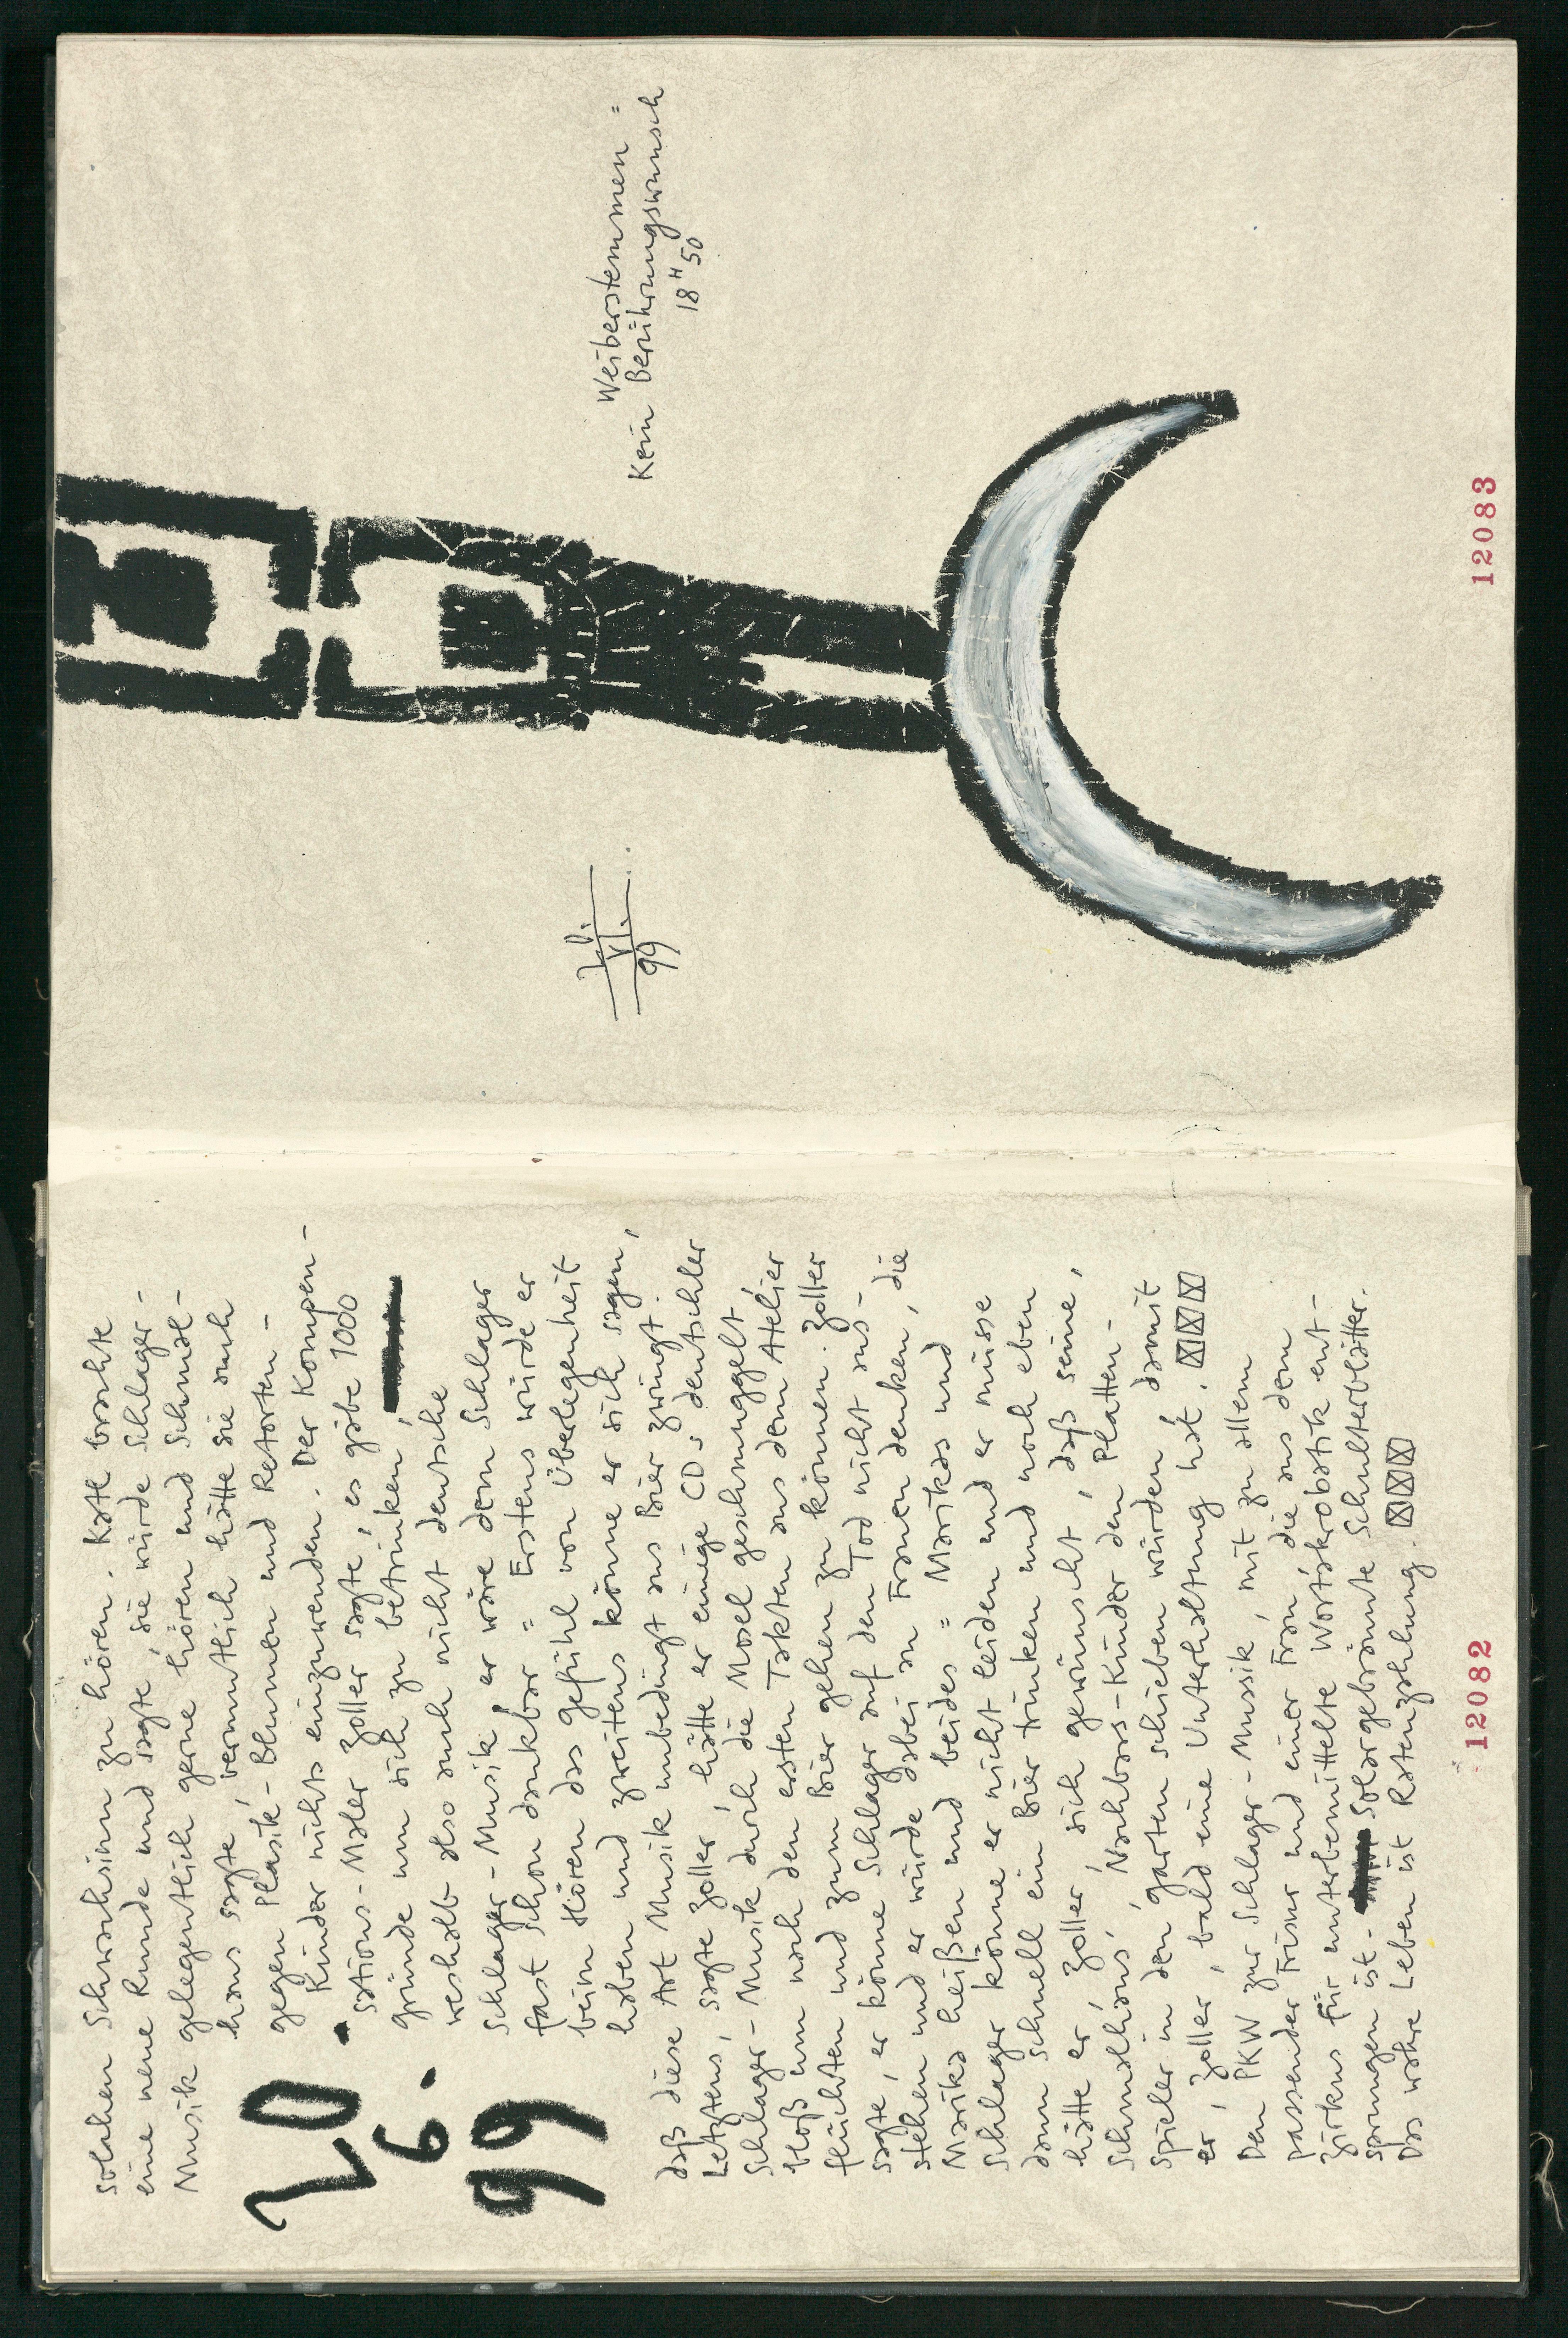 solchen Schwachsinn zu hören. Kate brachte
eine neue Runde und sagte, sie würde Schlager-
Musik gelegentlich gerne hören und Schmal-
haus sagte, vermutlich hätte sie auch
gegen Plastik-Blumen und Retorten-
Kinder nichts einzuwenden. Der Kompen-
sations-Maler Zoller sagte, es gäbe 1000
Gründe um sich zu betrinken,
weshalb also auch nicht deutsche
Schlager-Musik, er wäre dem Schlager
fast schon dankbar = Erstens würde er
beim Hören das Gefühl von Überlegenheit
haben und zweitens könne er sich sagen,
daß diese Art Musik unbedingt ans Bier zwingt.
Letztens, sagte Zoller, hätte er einige CDs deutschler
Schlager-Musik durch die Mosel geschmuggelt,
bloß um nach den ersten Takten aus dem Atelier
flüchten und zum Bier gehen zu können. Zoller
sagte, er könne Schlager auf den Tod nicht aus-
stehen und er würde dabei an Frauen denken, die
Marika heißen und beides = Marikas und
Schlager könne er nicht leiden und er müsse
dann schnell ein Bier trinken und noch eben
hätte er, Zoller, sich gewünscht, daß seine,
Schmalhaus', Nachbars-Kinder den Platten-
spieler in den Garten schieben würden, damit
er, Zoller, bald eine Unterhaltung hat.
Den PKW zur Schlager-Mussik, mit zu allem
passender Frisur und einer Frau, die aus dem
Zirkus für unterbemittelte Wortakrobatik ent-
sprungen ist - Solargebräunte Schulterblätter.
Das wahre Leben ist Ratenzahlung.
20.
6.
99
12082
VI.
99
Weiberstemmen =
Kein Berührungswunsch
18 H 50
12083